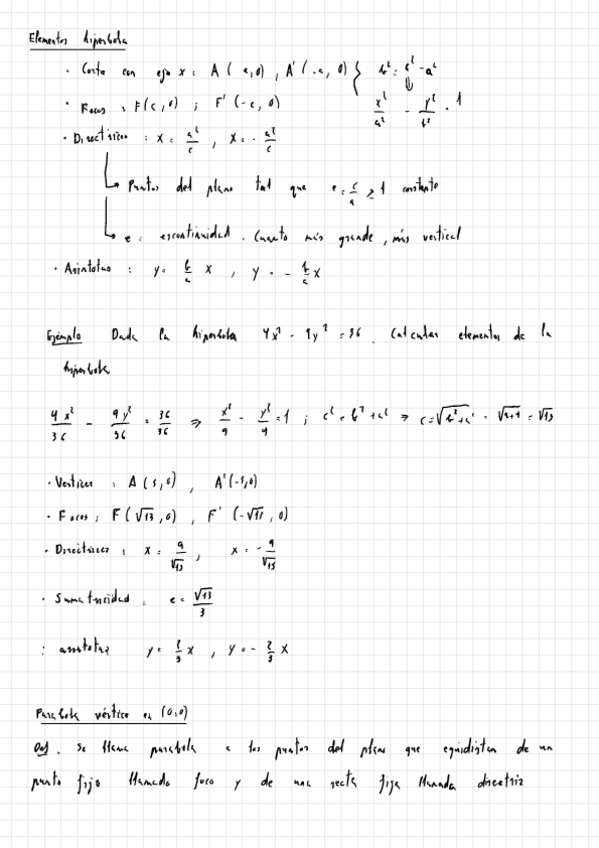 Elementos hiperbola
· Corta con eje x: A (a,0), A' (-a, 0) } b² = c² - a²
⇓
· Focos: F(c,0); F' (-c, 0) x²/a² - y²/b² = 1
· Directrices: x = a²/c, x = - a²/c
↳ Puntos del plano tal que e = c/a ≥ 1 constante
↳ e: Cuanto más grande, más vertical
· Asintotas: y = b/a x, y = - b/a x
Ejemplo Dada la hiperbola 4x² - 9y² = 36. Calcular elementos de la
hiperbola
4x²/36 - 9y²/36 = 36/36 ⇒ x²/9 - y²/4 = 1; c² = b² + a² ⇒ c = √b²+a² = √9+4 = √13
· Vertices: A (3,0), A' (-3,0)
· Focos: F (√13,0), F' (-√13, 0)
· Directrices: x = 9/√13, x = - 9/√13
· e = √13/3
: y = 2/3 x, y = - 2/3 x
Parabola vértice en (0,0)
Def. Se llama parabola a los puntos del plano que equidistan de un
punto fijo llamado foco y de una recta fija llamada directriz